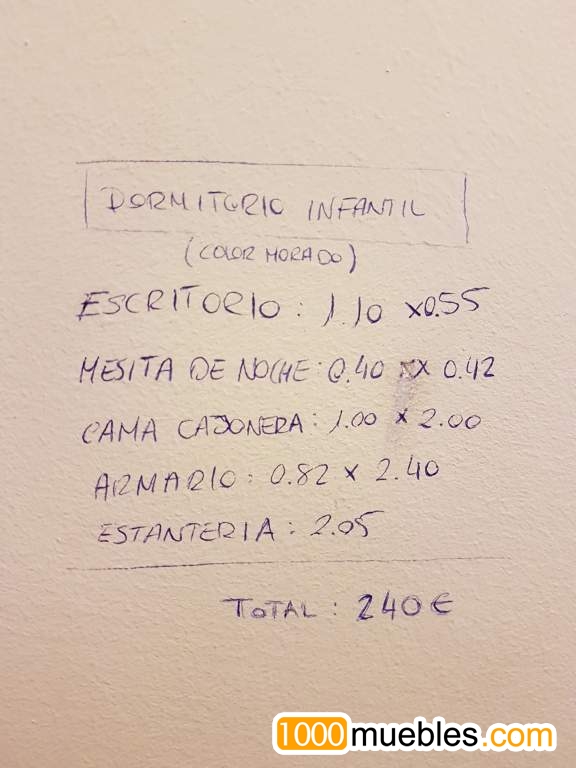 DORMITORIO INFANTIL
(COLOR MORADO)
ESCRITORIO: 1.10 x0.55
MESITA DE NOCHE: 0.40 x 0.42
CAMA CAJONERA: 1.00 x 2.00
ARMARIO: 0.82 x 2.40
ESTANTERIA: 2.05
TOTAL: 240€
1000muebles.com